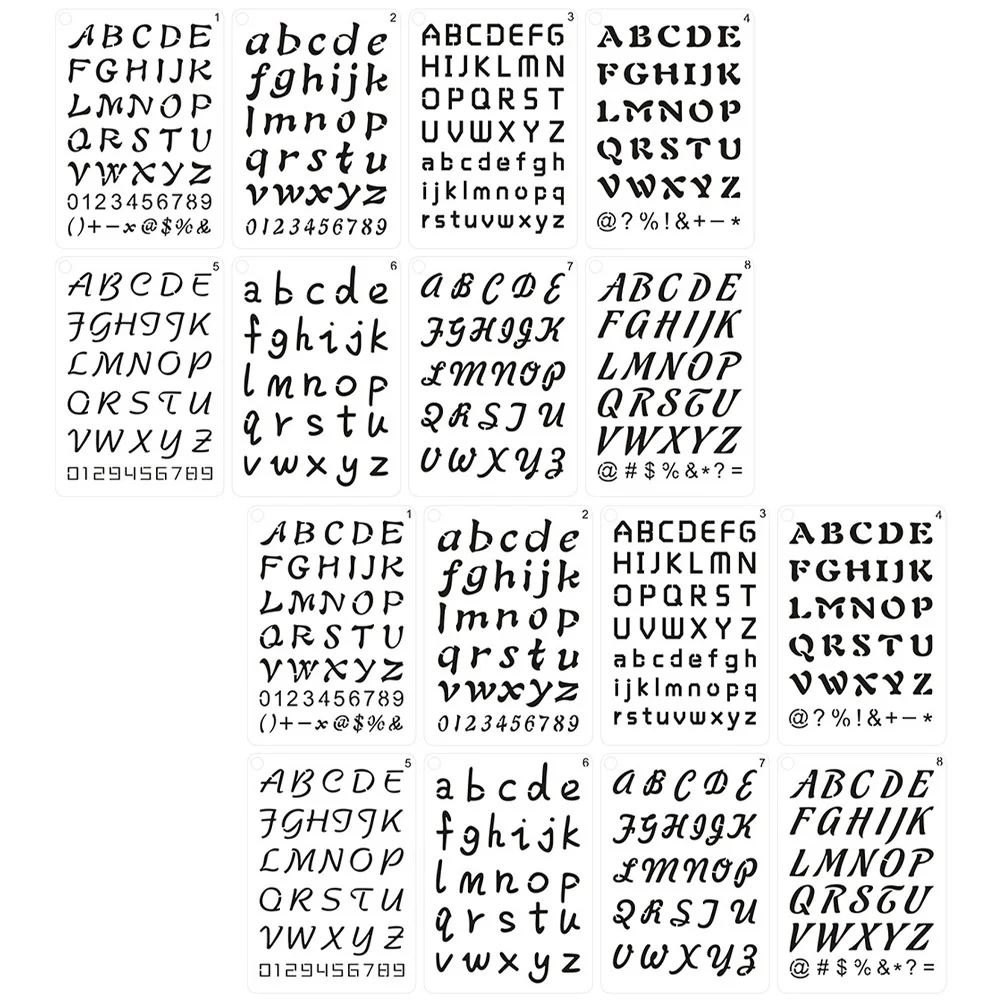 1
A B C D E
F G H I J K
L M N O P
Q R S T U
V W X Y Z
0 1 2 3 4 5 6 7 8 9
( ) + − x @ $ % &
2
a b c d e
f g h i j k
l m n o p
q r s t u
v w x y z
0 1 2 3 4 5 6 7 8 9
3
A B C D E F G
H I J K L M N
O P Q R S T
U V W X Y Z
a b c d e f g h
i j k l m n o p q
r s t u v w x y z
4
A B C D E
F G H I J K
L M N O P
Q R S T U
V W X Y Z
@ ? % ! & + − *
5
A B C D E
F G H I J K
L M N O P
Q R S T U
V W X Y Z
0 1 2 3 4 5 6 7 8 9
6
a b c d e
f g h i j k
l m n o p
q r s t u
v w x y z
7
A B C D E
F G H I J K
L M N O P
Q R S T U
V W X Y Z
8
A B C D E
F G H I J K
L M N O P
Q R S T U
V W X Y Z
@ # $ % & * ? =
1
A B C D E
F G H I J K
L M N O P
Q R S T U
V W X Y Z
0 1 2 3 4 5 6 7 8 9
( ) + − x @ $ % &
2
a b c d e
f g h i j k
l m n o p
q r s t u
v w x y z
0 1 2 3 4 5 6 7 8 9
3
A B C D E F G
H I J K L M N
O P Q R S T
U V W X Y Z
a b c d e f g h
i j k l m n o p q
r s t u v w x y z
4
A B C D E
F G H I J K
L M N O P
Q R S T U
V W X Y Z
@ ? % ! & + − *
5
A B C D E
F G H I J K
L M N O P
Q R S T U
V W X Y Z
0 1 2 3 4 5 6 7 8 9
6
a b c d e
f g h i j k
l m n o p
q r s t u
v w x y z
7
A B C D E
F G H I J K
L M N O P
Q R S T U
V W X Y Z
8
A B C D E
F G H I J K
L M N O P
Q R S T U
V W X Y Z
@ # $ % & * ? =